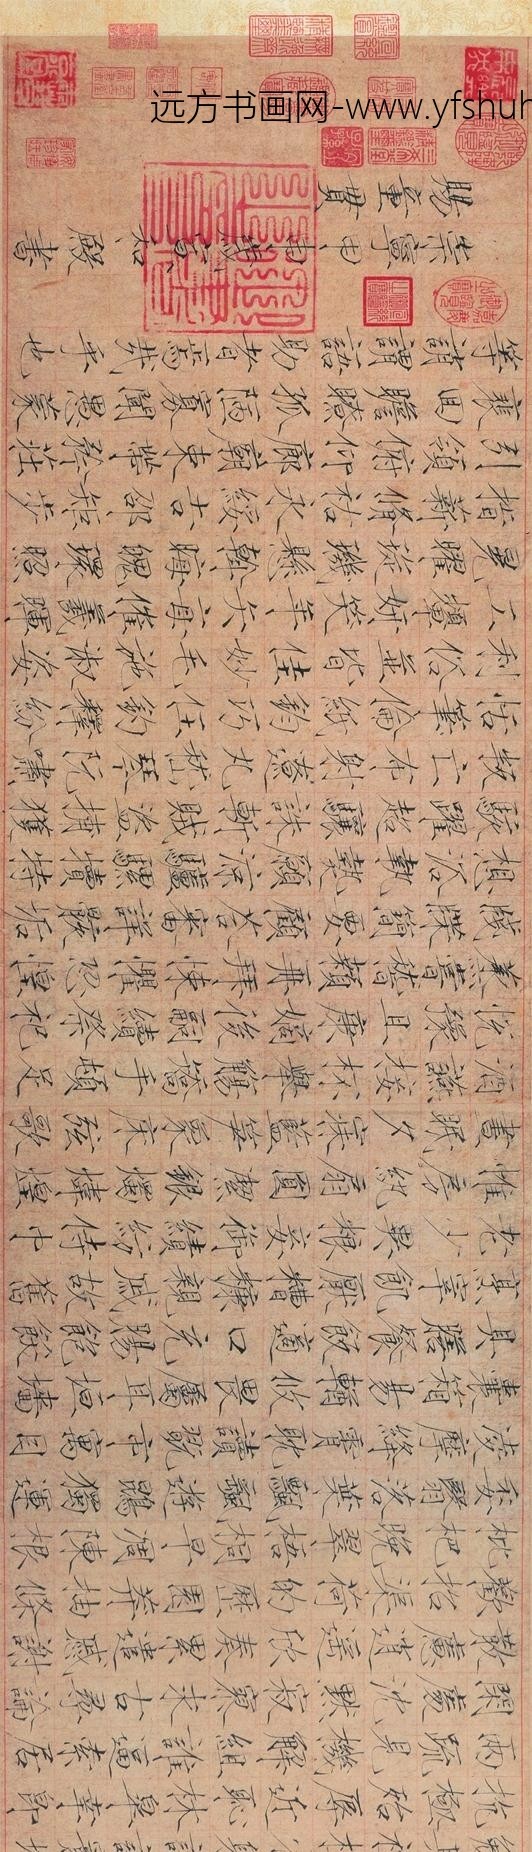 远方书画网-www.yfshuh
抗極殆辱近恥林皋幸即
兩疏見機解組誰逼索居
閑處沈默寂寥求古尋論
散慮逍遙欣奏累遣慼謝
歡招渠荷的歷園莽抽條
枇杷晚翠梧桐早凋陳根
委翳落葉飄颻遊鵾獨運
凌摩絳霄耽讀翫市寓目
囊箱易輶攸畏屬耳垣牆
具膳餐飯適口充腸飽飫
宰飢厭糟糠親戚故舊
老少異糧妾御績紡侍巾
帷房紈扇圓潔銀燭煒煌
晝眠夕寐藍笋象床弦歌
酒讌接杯舉觴矯手頓足
悅豫且康嫡後嗣續祭祀
蒸嘗稽顙再拜悚懼恐惶
牋牒簡要顧答審詳骸垢
想浴執熱願涼驢騾犢特
駭躍超驤誅斬賊盜捕獲
叛亡布射遼丸嵇琴阮嘯
恬筆倫紙鈞巧任釣釋紛
利俗並皆佳妙毛施淑姿
工顰妍笑年矢每催羲暉
晃曜旋璣懸斡晦魄環照
指薪脩祜永綏吉邵矩步
引領俯仰廊廟束帶矜莊
裵回瞻眺孤陋寡聞愚蒙
等誚謂語助者焉哉乎也
崇寧甲申歲宣和殿書
賜童貫